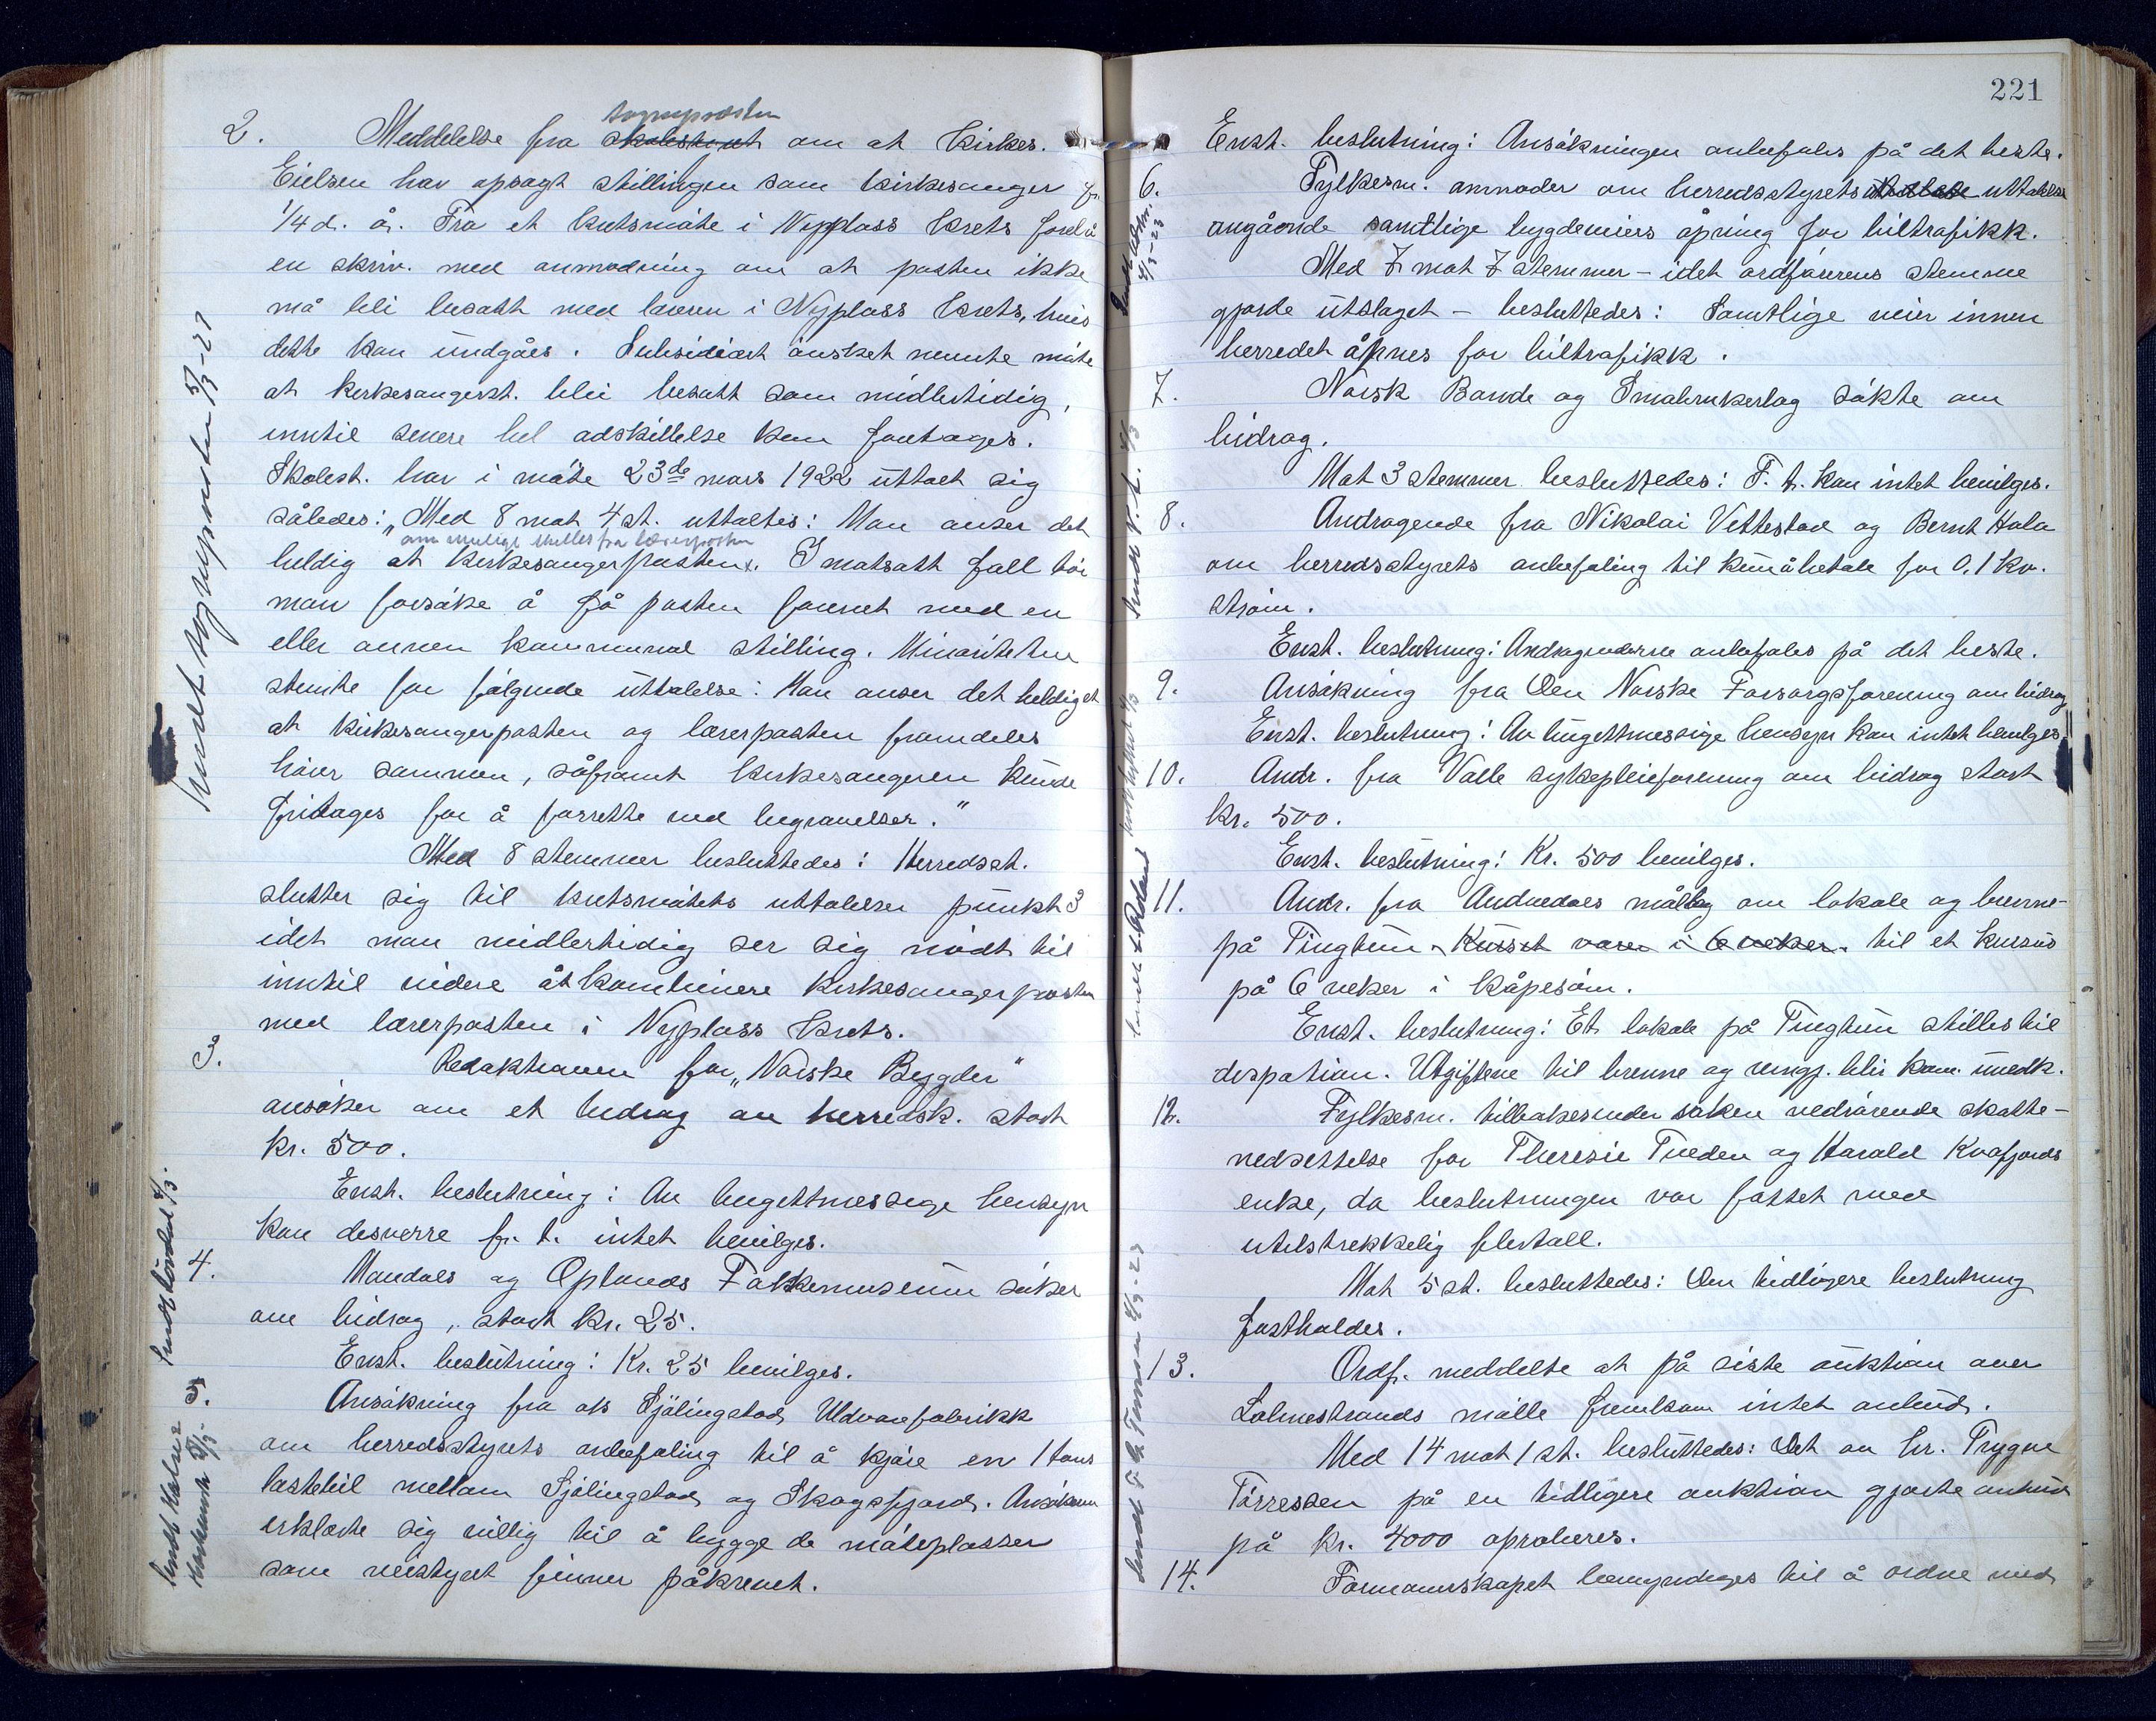 2. Meddelelse fra skolestyret sogneprosten om at kirkes.
Eielsen har opsagt stillingen som kirkesanger fr.
1/4 d. år. Fra et kretsmöte i Nyplass krets forelå
en skriv. med anmodning om at posten ikke
må bli besatt med læreren i Nyplass krets, hvis
dette kan undgåes. Subsidiært önsket nevnte möte
at kirkesangerst. blir besatt som midlertidig,
inntil senere hel adskillelse kan foretages.
Skolest. har i möte 23de mars 1922 uttalt sig
således: "Med 8 mot 4 st. uttaltes: Man anser det
om mulig skilles fra lærerposten
heldig at kirkesangerposten x. I motsatt fall bör
man forsöke å få posten forenet med en
eller annen kommunal stilling. Minoriteten
stemte for fölgende uttalelse: Man anser det heldigst
at kirkesangerposten og lærerposten fremdeles
hörer sammen, såfremt kirkesangeren kunde
fritages for å forrette ved begravelser."
Med 8 stemmer besluttedes: Herredsst.
slutter sig til kretsmötets uttalelser punkt 3
idet man midlertidig ser sig nödt til
inntil videre åt kombinere kirkesangerposten
med lærerposten i Nyplass krets.
3. Redaktionen for "Norske Bygder"
ansöker om et bidrag av herredsk. stort
kr. 500.
Enst. beslutning: Av bugettmessige hensyn
kan desverre fr. t. intet bevilges.
4. Mandals og Oplands Folkemuseum söker
om bidrag, stort kr. 25.
Enst. beslutning: Kr. 25 bevilges.
5. Ansökning fra a/s Sjölingstad Uldvarefabrikk
om herredsstyrets anbefaling til å kjöre en 1 tons
lastebil mellom Sjölingstad og Skogsfjord. Ansökeren
erklærte sig villig til å bygge de möteplasser
som veistyret finner påkrevet.
sendt sogneprosten 5/3-23
221
Enst. beslutning: Ansökningen anbefales på det beste.
6. Fylkesm. anmoder om herredsstyrets uttalelse
angående samtlige bygdeveiers åpning for biltrafikk.
Med 7 mot 7 stemmer – idet ordförerens stemme
gjorde utslaget – besluttedes: Samtlige veier innen
herredet åpnes for biltrafikk.
7. Norsk Bonde og Småbrukerlag sökte om
bidrag.
Mot 3 stemmer besluttedes: F. t. kan intet bevilges.
8. Andragende fra Nikolai Vettestad og Bernt Hala
om herredsstyrets anbefaling til kun å betale for 0.1 kv.
ström.
Enst. beslutning: Andragenderne anbefales på det beste.
9. Ansökning fra Den Norske Forsorgsforening om bidrag
Enst. beslutning: Av bugettmessige hensyn kan intet bevilges.
10. Andr. fra Valle sykepleieforening om bidrag stort
kr. 500.
Enst. beslutning: Kr. 500 bevilges.
11. Andr. fra Audnedals mållag om lokale og brenne
på Tingtun. Kurset varer i 6 veker. til et kursus
på 6 veker i kåpesöm.
Enst. beslutning: Et lokale på Tingtun stilles til
disposion. Utgiftene til brenne og rengj. blir kom. uvedk.
12. Fylkesm. tilbakesender saken vedrörende skatte-
nedsettelse for Theresie Tveden og Harald Kvafjords
enke, da beslutningen var fattet med
utilstrekkelig flertall.
Mot 5 st. besluttedes: Den tidligere beslutning
fastholdes.
13. Ordf. meddelte at på siste auktion over
Solmestrands mölle fremkom intet anbud.
Med 14 mot 1 st. besluttedes: Det av hr. Trygve
Törressen på en tidligere auktion gjorte anbud
på kr. 4000 aproberes.
14. Formannskapet bemyndiges til å ordne med